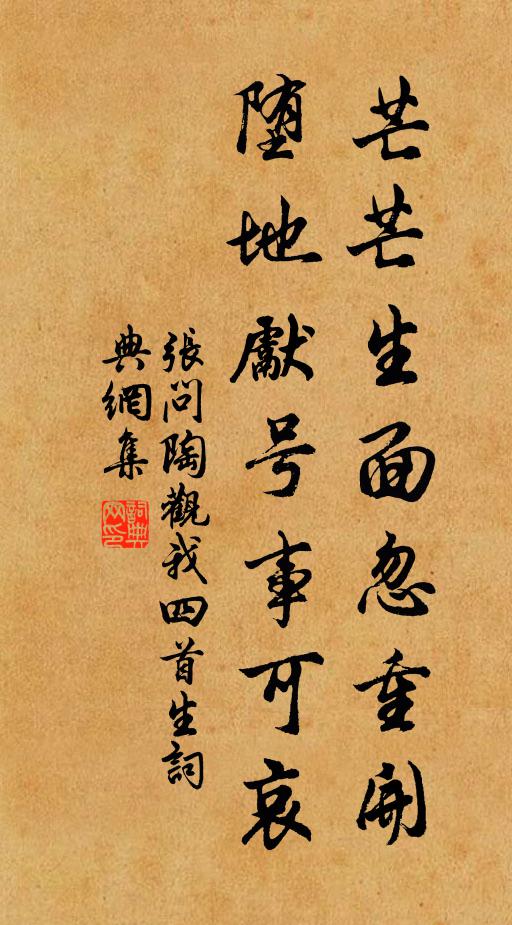 芒芒生面忽重開
堕地獻号事可哀
張問陶觀我四首生詞
典網集
詞典網印